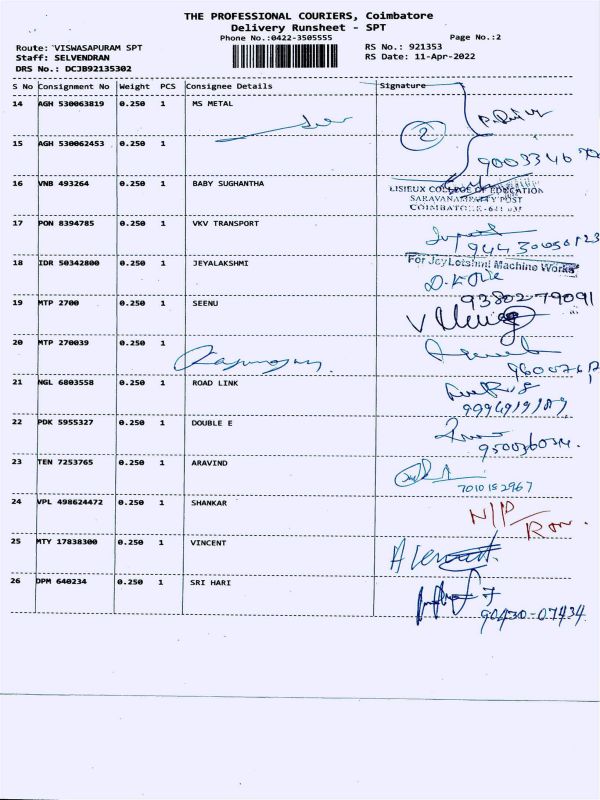 THE PROFESSIONAL COURIERS, Coimbatore
Delivery Runsheet - SPT
Phone No.:0422-3505555
Page No.:2
Route: VISWASAPURAM SPT
RS No.: 921353
Staff: SELVENDRAN
RS Date: 11-Apr-2022
DRS No.: DCJB92135302
S No Consignment No Weight PCS Consignee Details Signature
14 AGH 530063819 0.250 1 MS METAL
2
15 AGH 530062453 0.250 1
16 VNB 493264 0.250 1 BABY SUGHANTHA
LISIEUX COLLEGE OF EDUCATION
SARAVANAMPATTY POST
COIMBATORE - 641 035
17 PON 8394785 0.250 1 VKV TRANSPORT
18 IDR 50342800 0.250 1 JEYALAKSHMI
For JeyLatshmi Machine Works
93802-79091
19 MTP 2700 0.250 1 SEENU
20 MTP 270039 0.250 1
21 NGL 6803558 0.250 1 ROAD LINK
9994919189
22 PDK 5955327 0.250 1 DOUBLE E
23 TEN 7253765 0.250 1 ARAVIND
7010152967
24 VPL 498624472 0.250 1 SHANKAR
N/P
25 MTY 17838300 0.250 1 VINCENT
26 DPM 640234 0.250 1 SRI HARI
90430-07434